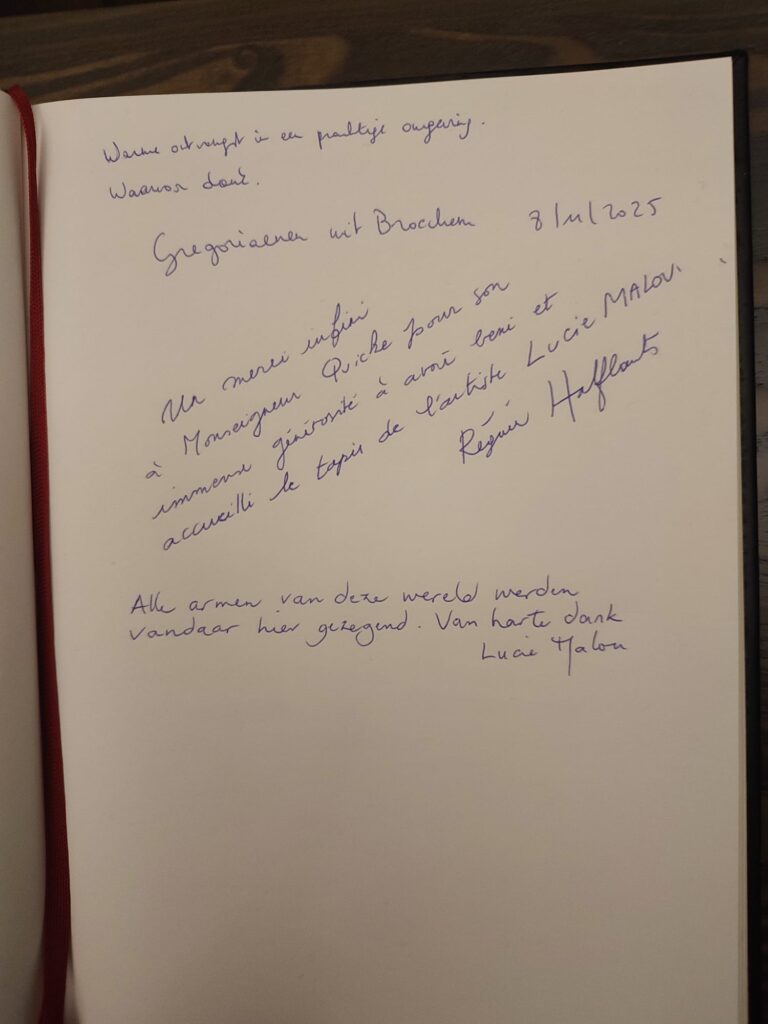 Warme ontvangst in een prachtige omgeving.
Waarvoor dank.
Gregorianen uit Broechem 8/11/2025
Un merci infini
à Monseigneur Quicke pour son
immense générosité à avoir beni et
accueilli le tapis de l'artiste Lucie MALOU.
Halflants
Alle armen van deze wereld werden
vandaar hier gezegend. Van harte dank
Lucie Malou